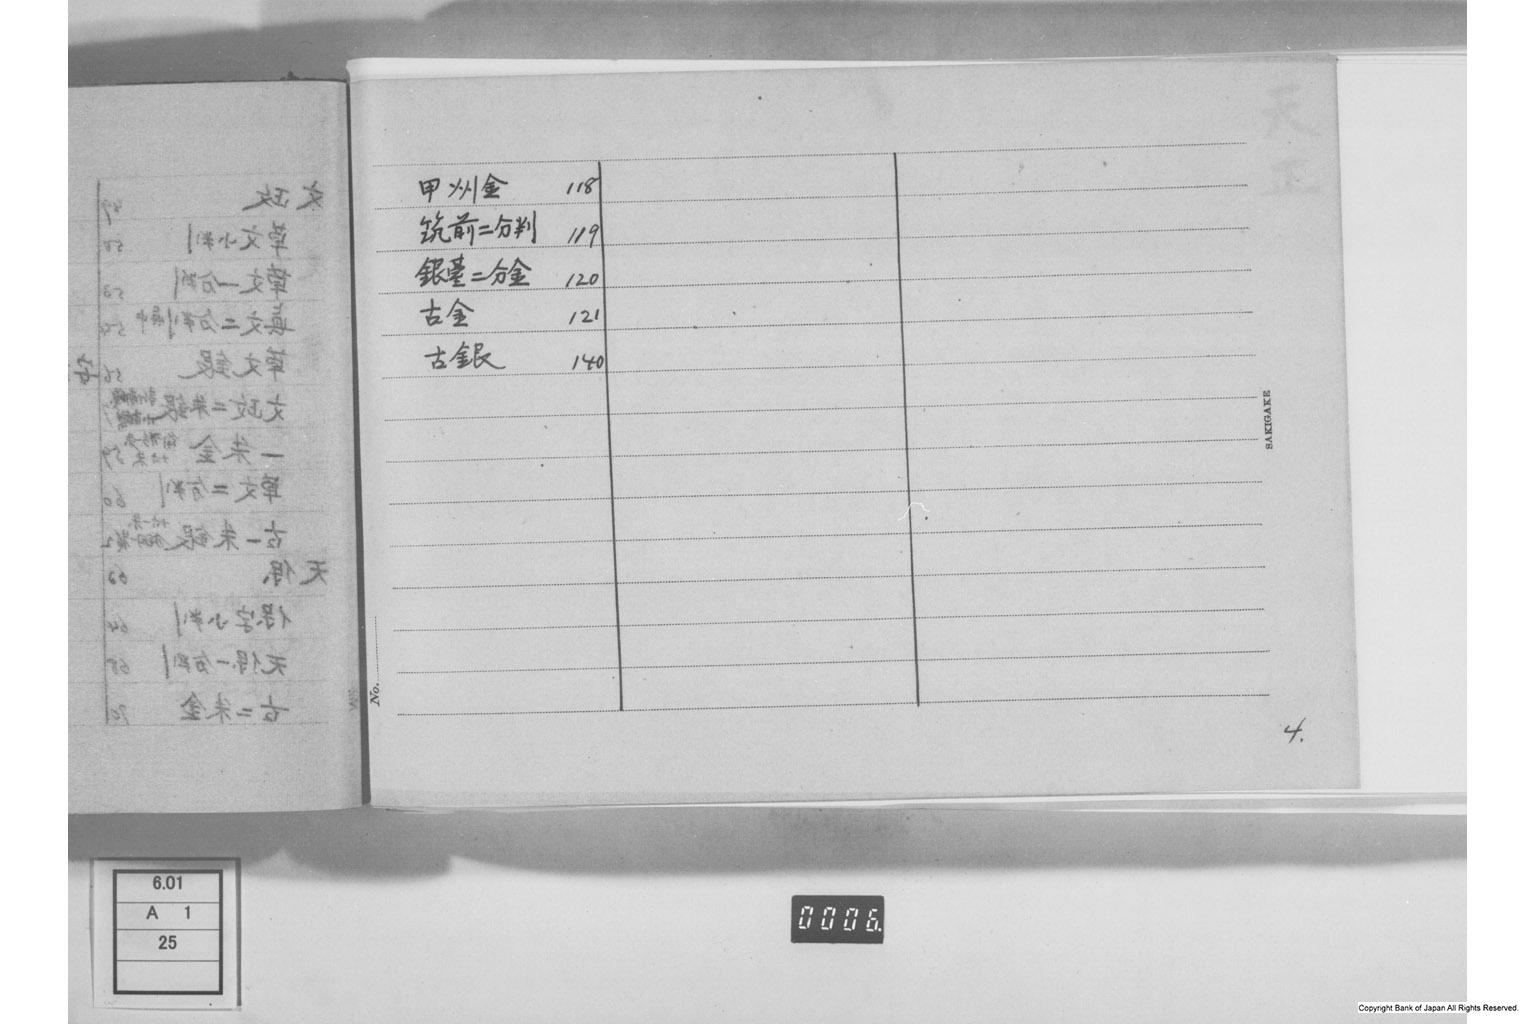 甲州金 118
筑前二分判 119
銀臺二分金 120
古金 121
古銀 140
SAKIGAKE
No.
4.
文政
草文小判
草文一分判
真文二分判
草文銀
文政二朱銀
一朱金
草文二分判 60
古一朱銀
天保
保字小判
天保一分判
古二朱金 70
6.01
A 1
25
0006
Copyright Bank of Japan All Rights Reserved.